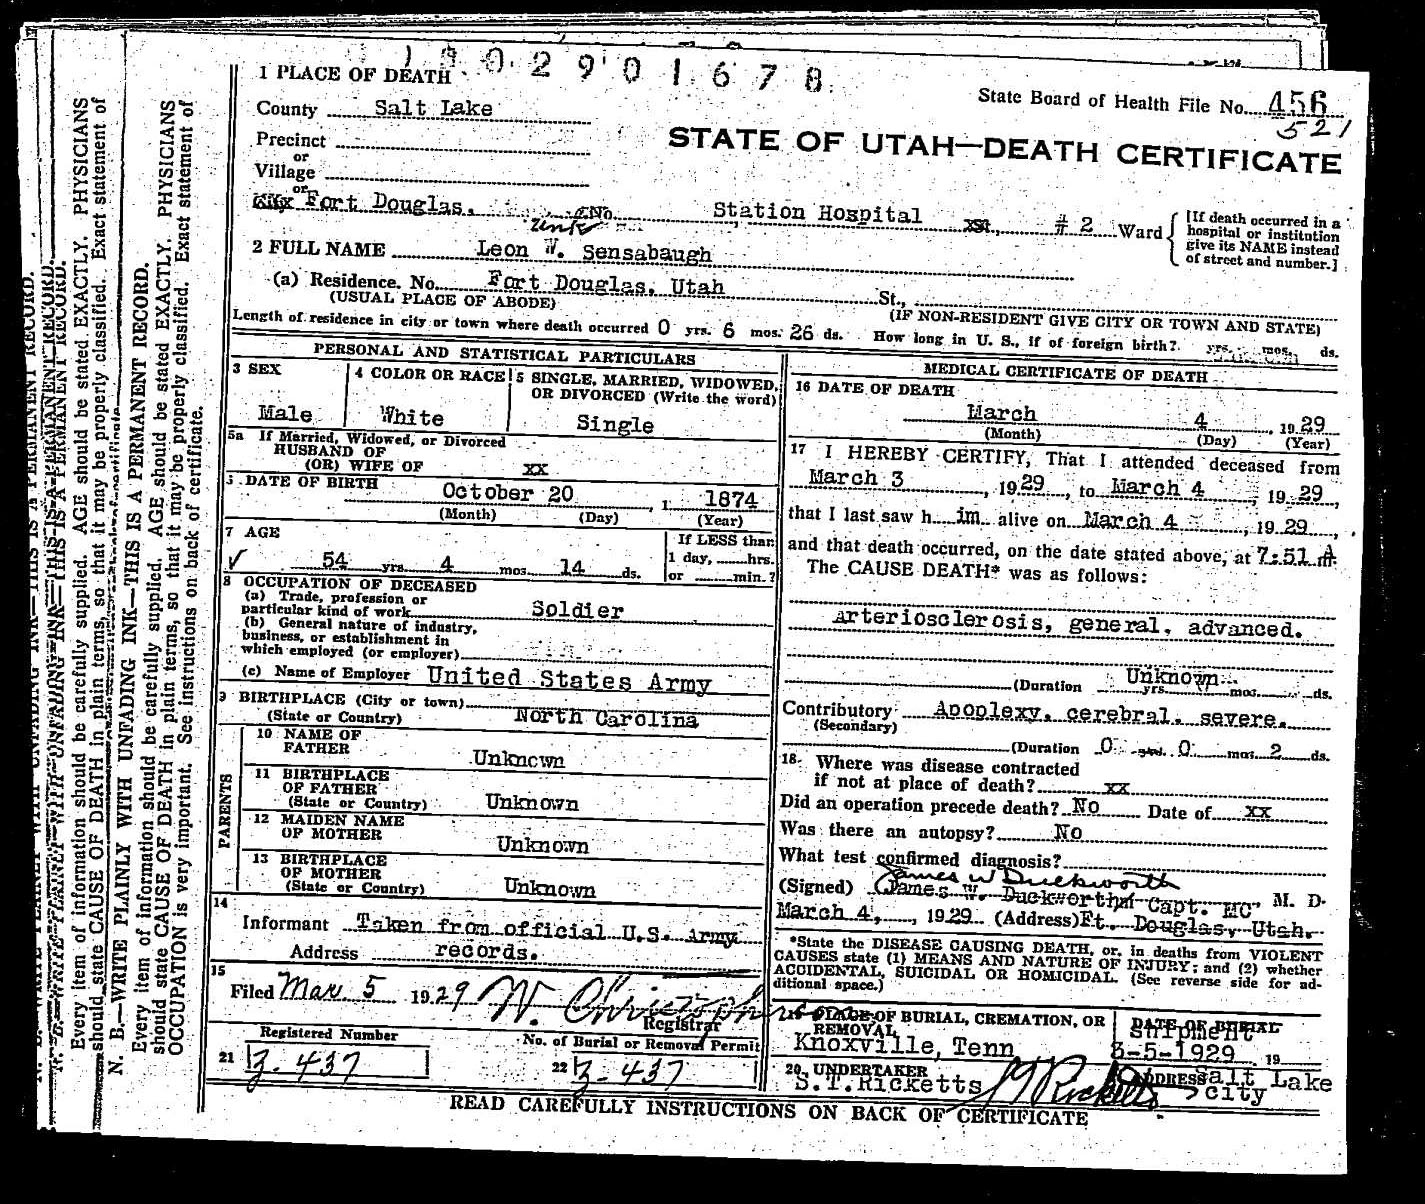 1902901678
1 PLACE OF DEATH
State Board of Health File No. 456
521
County Salt Lake
STATE OF UTAH—DEATH CERTIFICATE
Precinct
or
Village
or
City Fort Douglas, No. Station Hospital St., # 2 Ward
[If death occurred in a hospital or institution give its NAME instead of street and number.]
2 FULL NAME Leon W. Sensabaugh
(a) Residence. No. Fort Douglas, Utah St.,
(USUAL PLACE OF ABODE) (IF NON-RESIDENT GIVE CITY OR TOWN AND STATE)
Length of residence in city or town where death occurred 0 yrs. 6 mos. 26 ds. How long in U. S., if of foreign birth? yrs. mos. ds.
PERSONAL AND STATISTICAL PARTICULARS
3 SEX
Male
4 COLOR OR RACE
White
5 SINGLE, MARRIED, WIDOWED,
OR DIVORCED (Write the word)
Single
5a If Married, Widowed, or Divorced
HUSBAND OF
(OR) WIFE OF xx
DATE OF BIRTH October 20, 1874
(Month) (Day) (Year)
7 AGE
✓ 54 yrs. 4 mos. 14 ds.
If LESS than
1 day, hrs.
or min.?
8 OCCUPATION OF DECEASED
(a) Trade, profession or
particular kind of work Soldier
(b) General nature of industry,
business, or establishment in
which employed (or employer)
(c) Name of Employer United States Army
9 BIRTHPLACE (City or town)
(State or Country) North Carolina
PARENTS
10 NAME OF
FATHER Unknown
11 BIRTHPLACE
OF FATHER
(State or Country) Unknown
12 MAIDEN NAME
OF MOTHER Unknown
13 BIRTHPLACE
OF MOTHER
(State or Country) Unknown
14
Informant Taken from official U.S. Army
Address records.
15
Filed Mar 5 1929 W. Christopherson
Registrar
Registered Number
21 3-437
No. of Burial or Removal Permit
22 3-437
MEDICAL CERTIFICATE OF DEATH
16 DATE OF DEATH
March 4, 1929
(Month) (Day) (Year)
17 I HEREBY CERTIFY, That I attended deceased from
March 3, 1929, to March 4, 1929,
that I last saw him alive on March 4, 1929,
and that death occurred, on the date stated above, at 7:51 A m.
The CAUSE DEATH* was as follows:
arteriosclerosis, general, advanced.
Unknown
(Duration yrs. mos. ds.
Contributory Apoplexy, cerebral, severe.
(Secondary)
(Duration 0 yrs. 0 mos. 2 ds.
18. Where was disease contracted
if not at place of death? xx
Did an operation precede death? No Date of xx
Was there an autopsy? No
What test confirmed diagnosis?
James W Duckworth
(Signed) James W. Duckworth Capt. MC M. D.
March 4, 1929 (Address) Ft. Douglas, Utah.
*State the DISEASE CAUSING DEATH, or, in deaths from VIOLENT
CAUSES state (1) MEANS AND NATURE OF INJURY; and (2) whether
ACCIDENTAL, SUICIDAL OR HOMICIDAL. (See reverse side for ad-
ditional space.)
19 PLACE OF BURIAL, CREMATION, OR
REMOVAL
Knoxville, Tenn
DATE OF BURIAL
Shipment
3-5-1929 19
20 UNDERTAKER
S.T.Ricketts
ADDRESS Salt Lake
City
READ CAREFULLY INSTRUCTIONS ON BACK OF CERTIFICATE
N. B.—WRITE PLAINLY WITH UNFADING INK—THIS IS A PERMANENT RECORD.
Every item of information should be carefully supplied. AGE should be stated EXACTLY. PHYSICIANS
should state CAUSE OF DEATH in plain terms, so that it may be properly classified. Exact statement of
OCCUPATION is very important. See instructions on back of certificate.